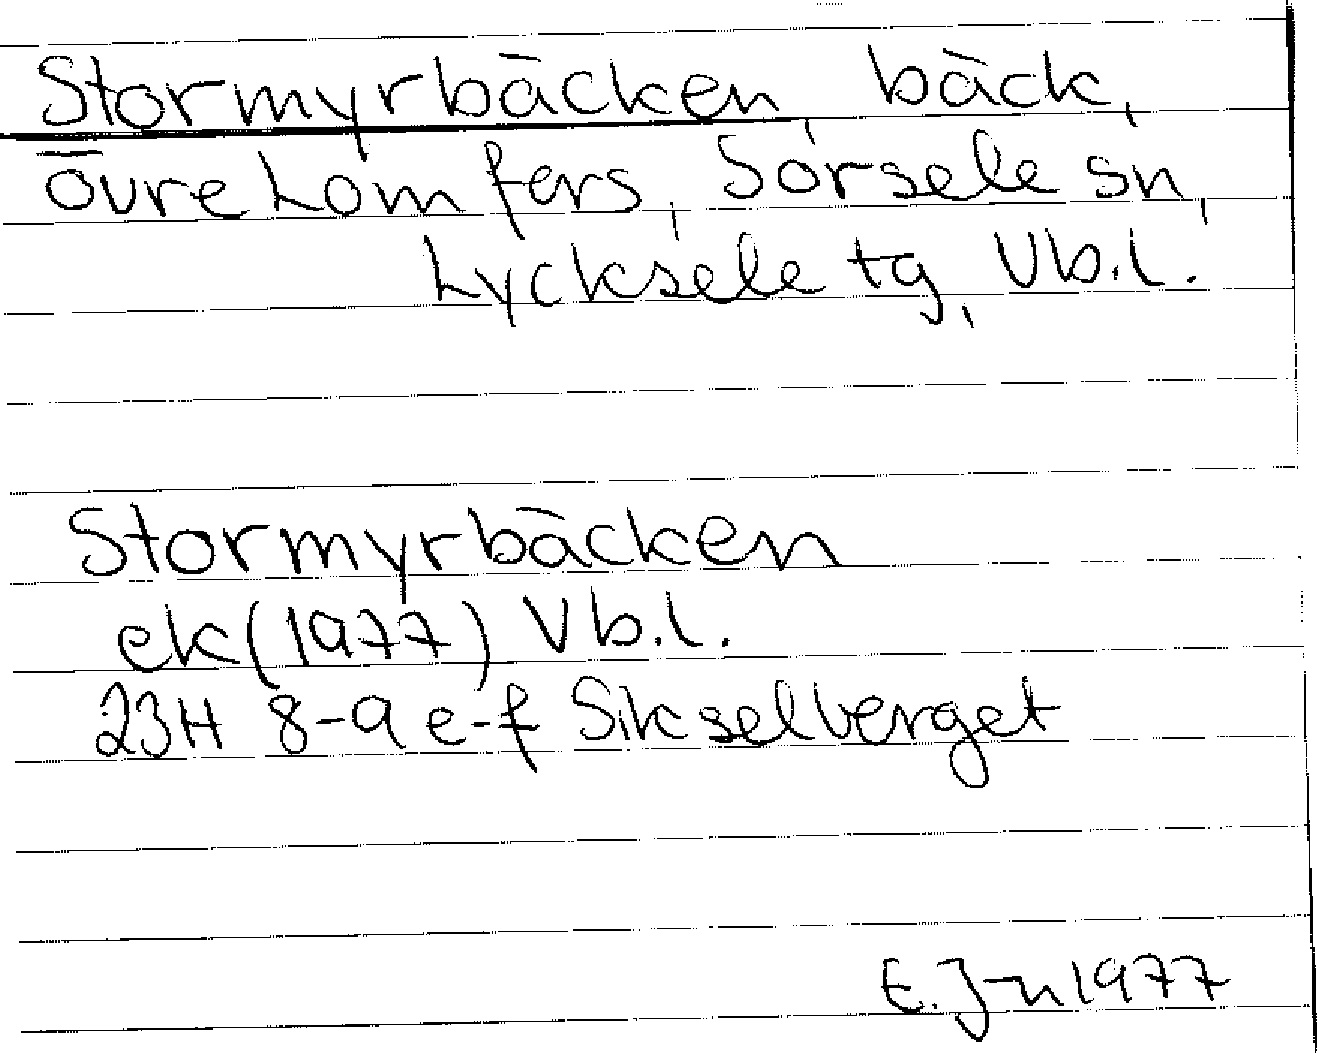 Stormyrbäcken, bäck,
övre Lomfors, Sorsele sn,
Lycksele tg, Vb.l.
Stormyrbäcken
ek (1977) Vb.l.
23H 8-9 e-f Sikselberget
E. J-n 1977